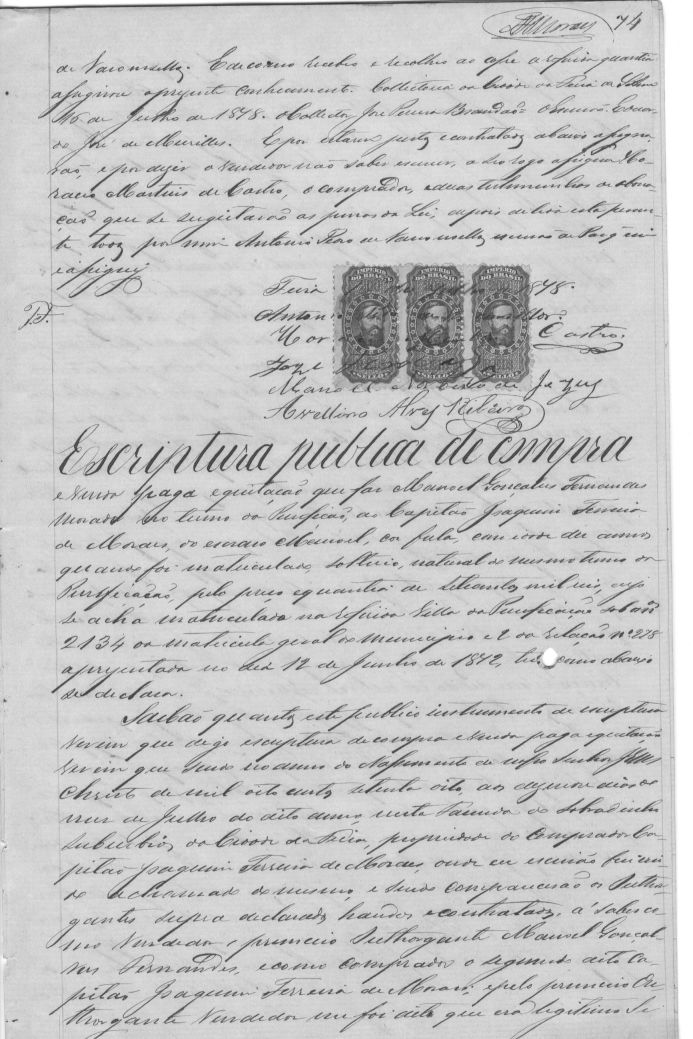 74
de Vasconcellos. E de como recebeo e recolheo ao cofre a referida quantia
assignou o presente conhecimento. Collectoria da Cidade da Feira de
16 de Julho de 1878. O Collector José Pereira Brandão. O Escrivão
José de Meirelles. E por estarem justos e contratados abaixo assigna
rão, e por dizer o vendedor não saber escrever, a seo rogo assignou Ho
racio Martins de Castro, o comprador, e duas testemunhas
que se sugeitarão as penas da Lei, depois de lida esta peran
te todos por mim Antonio de Vasconcellos escrivão de Paz que
e assignei
Feira 1878.
IMPERIO DO BRASIL IMPERIO DO BRASIL IMPERIO DO BRASIL
Antonio
Hor Castro.
Joze
Manoel Norberto de Jezus
Avellino Alves Ribeiro
Escriptura publica de compra
e venda paga e quitação que faz Manoel Gonçalves Fernandes
morador no termo da Purificação, ao Capitão Joaquim Ferreira
de Moraes, do escravo Manoel, cor fula, com idade de annos
quando foi matriculado, solteiro, natural do mesmo termo da
Purificação, pelo preço e quantia de mil reis, cujo
se acha matriculado na referida Villa da Purificação sob o nº
2134 da matricula geral do municipio e 2 da relação nº 228
apresentada no dia 12 de Junho de 1872, como abaixo
se declara.
Saibão quantos este publico instrumento de escriptura
virem que digo escriptura de compra e venda paga e quitação
virem que sendo no anno do Nascimento de nosso Senhor Jesus
Christo de mil oito centos setenta oito, aos dezenove dias do
mez de Julho do dito anno, nesta Fazenda do Sobradinho
suburbios da Cidade da Feira, propriedade do comprador Ca
pitão Joaquim Ferreira de Moraes, onde eu escrivão fui vin
do a chamado do mesmo, e sendo comparecerão os Outhor
gantes supra declarados havidos e contratados, á saber co
mo vendedor e primeiro Outhorgante Manoel Gonçal
ves Fernandes, e como comprador o segundo dito Ca
pitão Joaquim Ferreira de Moraes; e pelo primeiro Ou
thorgante vendedor me foi dito que era legitimo Se